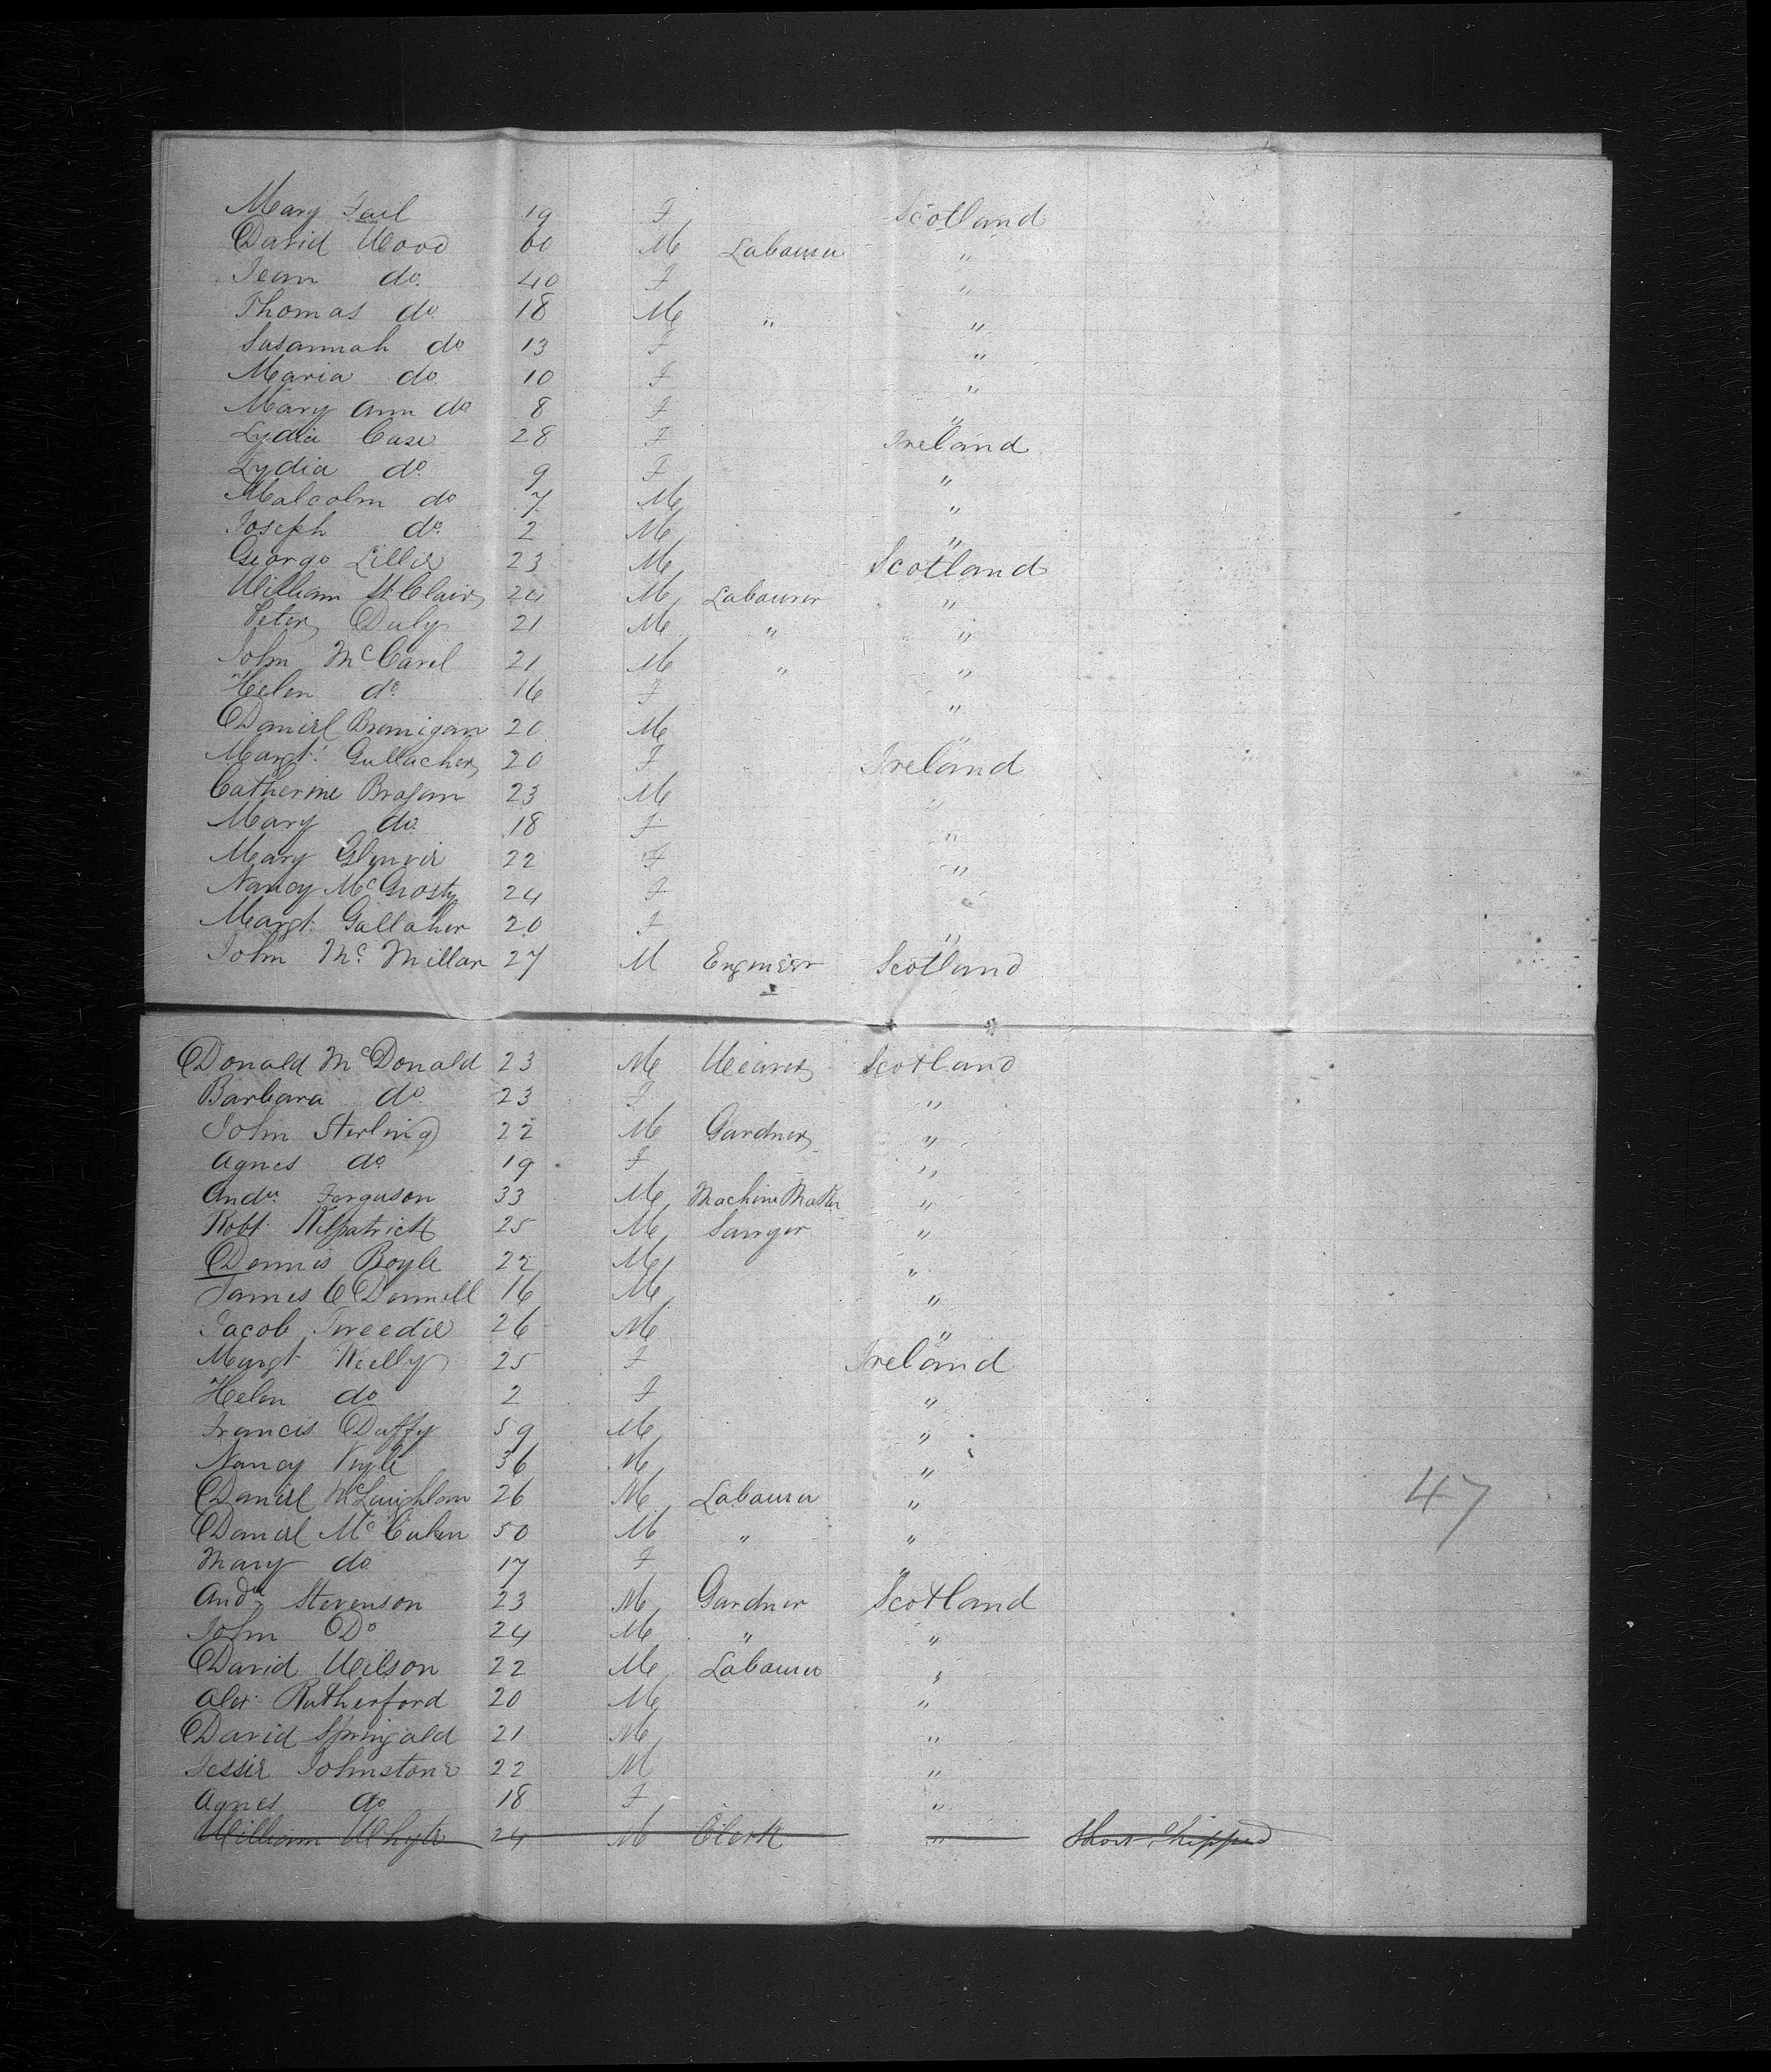 Mary Tail 19 F Scotland
David Wood 60 M Labourer "
Jean do. 40 F "
Thomas do 18 M " "
Susannah do 13 F "
Maria do. 10 F "
Mary Ann do 8 F "
Lydia Case 28 F Ireland
Lydia do. 9 F "
Malcolm do 7 M "
Joseph do. 2 M "
George Lillie 23 M Scotland
William St Clair 24 M Labourer "
Peter Duly 21 M " "
John McCarel 21 M " "
Helen do. 16 F "
Daniel Branigan 20 M "
Margt. Gullacher 20 F Ireland
Catherine Brogan 23 M "
Mary do. 18 F "
Mary 22 F "
Nancy McGrosty 24 F "
Margt. Gallaher 20 F "
John Mc. Millan 27 M Engineer Scotland
Donald McDonald 23 M Weaver Scotland
Barbara do. 23 F "
John Sterling 22 M Gardner "
Agnes do 19 F "
Andw. Ferguson 33 M Machine Master "
Robt. Kilpatrick 25 M Sawyer "
Dennis Boyle 22 M "
James O Donnell 16 M "
Jacob Tweedie 26 M "
Margt Kelly 25 F Ireland
Helen do 2 F "
Francis Duffy 59 M "
Nancy 36 M "
Daniel McLaughlan 26 M Labourer "
Daniel McCuken 50 M " "
Mary do 17 F "
Andw Stevenson 23 M Gardner Scotland
John Do 24 M " "
David Wilson 22 M Labourer "
Alex. Rutherford 20 M "
David Springald 21 M "
Jessie Johnstone 22 M "
Agnes do 18 F "
William Whyte 24 M Clerk " Short Shipped
47